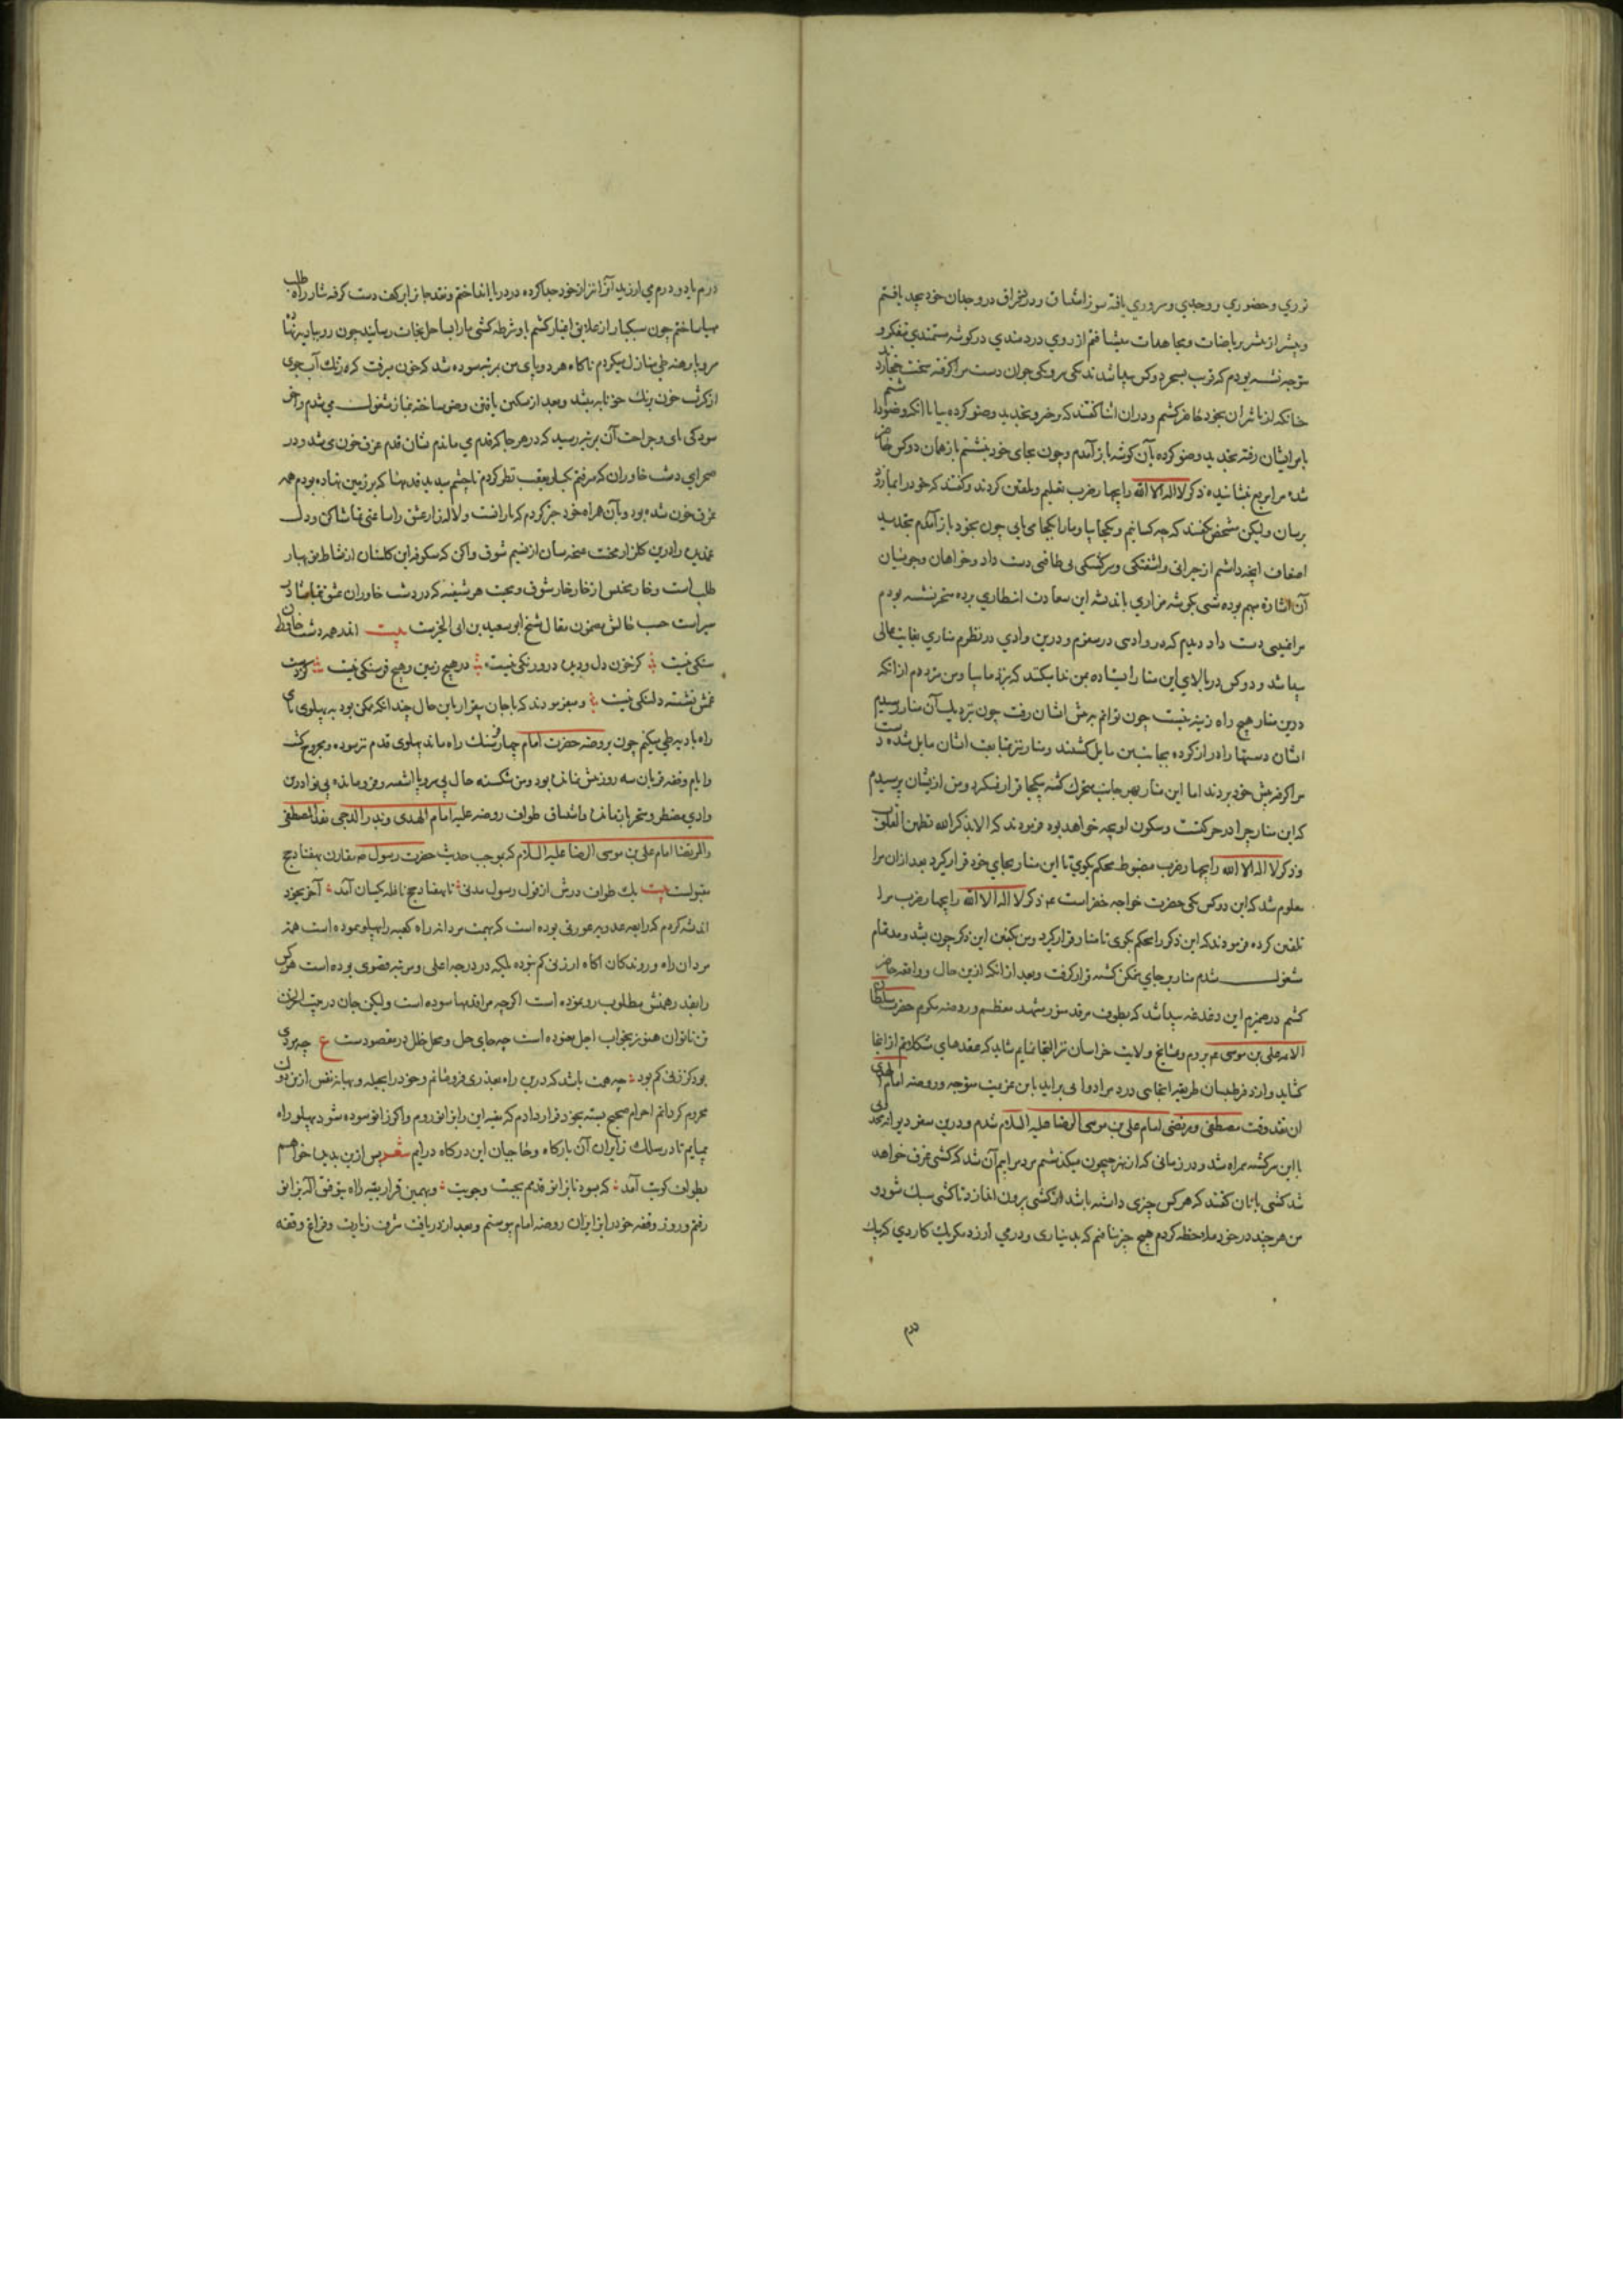 نوري و حضوري و وجدي و سروري يافته سوز اشتياق و درد فراق در وجدان خود بيحد يافتم
و بيشتر از بيشتر برياضات و مجاهدات ميشتافتم از روي دردمندي در كوشه مستمندي متفكر و
متوجه نشسته بودم كه قرب بسحر دو كس پيدا شدند يكي پير و يكي جوان دست مرا كرفته سخت
خانكه از تاثر آن بخود حاضر كشتم و در آن اثنا كفتند كه برخيز و تجديد وضو كرده بيا با انكه وضو دا شتم
با مر ايشان رفته تجديد وضو كرده بآن كوشه باز آمدم و چون بجاي خود بنشستم باز همان دو كس حاضر
شده مرا مربع نشانيده ذكر لا اله الا الله را بچهار ضرب تعليم و تلقين كردند و كفتند كه خود را
برسان وليكن مشخص نكفتند كه چه كسانيم و بكجا بيا و ما را بكجا مي يابي چون بخود باز آمدم تجديد
اضعاف آنچه داشتم از حيراني و آشفتكي و سركشتكي بي طاقتي دست داد و خواهان و جويان
آن اشاره مبهم بوده شبي بكوشه مزاري باندشه اين سعادت انتظاري برده متحير نشسته بودم
مرا غيبتي دست داد ديدم كه در وادي در سفرم و درين وادي در نظرم مناري بغايت عالي
پيدا شد و دو كس در بالاي اين منار ايستاده بمن ندا ميكنند كه نزد ما بيا و من مترددم از انكه
درين منار هيچ راه زينه نيست چون توانم به پيش ايشان رفت چون نزديك آن منار رسيدم
ايشان دستها را دراز كرده بجانب من مايل كشتند و منار نيز بمتابعت ايشان مايل شده دست
مرا كرفته پيش خود بردند اما اين منار بهر جانب متحرك كشته بيكجا قرار نميكرد و من از ايشان پرسيدم
كه اين منار چرا در حركتست و سكون او بچه خواهد بود فرمودند كه الا بذكر الله تطمئن القلوب
و ذكر لا اله الا الله را بچهار ضرب مضبوط محكم بكوي تا اين منار بجاي خود قرار كيرد بعد ازان مرا
معلوم شد كه اين دو كس يكي حضرت خواجه خضر است ع م ذكر لا اله الا الله را بچهار ضرب مرا
تلقين كرده فرمودند كه اين ذكر را محكم بكوي تا منار قرار كيرد و من بكفتن اين ذكر چون بشد و مد تمام
مشغول شدم منار بر جاي متمكن كشته قرار كرفت و بعد از انكه ازين حال و واقعه حاضر
كشتم در ضميرم اين دغدغه پيدا شد كه بطوف مرقد منور مشهد معظم و روضه مكرم حضرت سلطان
الائمه علي بن موسي ع م بروم و مشايخ ولايت خراسان نيز التجا نمايم شايد كه عقدهاي مشكلاتم از انجا
كشايد و از در طبيبان طريقه انجامي درد مرا دوا يي برايد باين عزيمت متوجه روضه امام الهدي
آن نقد وقت مصطفي و مرتضي امام علي بن موسي الرضا عليه السلام شدم و درين سفر ديوانه
با اين سركشته همراه شد و در زماني كه از نهر جيحون ميكذشتم بر سرايم آن شد كه كشتي غرق خواهد
شد كشتي بانان كفتند كه هر كس چيزي داشته باشد از كشتي بيرون اندازد تا كشتي سبك شود و
من هر چند در خود ملاحظه كردم هيچ چيز نيافتم كه بديناري و درمي ارزد مكر يك كاردي كه يك
درم
درم يا دو درم مي ارزيد آنرا نيز از خود جدا كرده در دريا انداختم و نقد جانرا بر كف دست كرفته نثار راه طلب
مهيا ساختم چون سبكبار از علايق اغيار كشتم باد شرطه كشتي ما را بساحل نجات رسانيد چون رو بباديه نهاده
سر و پا برهنه طي منازل ميكردم ناكاه هر دو پاي من بمرتبه سوده شد كه خون ميرفت كه رنك آب جوي
از كثرت خون برنك خونابه ميشد و بعد از تسكين يافتن وضو ساخته بنماز مشغول مي شدم و آخر
سودكي پاي و جراحت آن بمرتبه رسيد كه در هر جا كه قدم مي ماندم نشان قدم غرق خون مي شد و در
صحراي دشت خاوران كه ميرفتم يكبار بعقب نظر كردم تا چشم ميديد قدمها كه بر زمين نهاده بودم همه
غرق خون شده بود و بآن همراه خود خبر كردم كه يارانت و لاله زار عشق را ساعتي تماشا كن و دل
غمديده را درين كلزار محنت غنچه سان از نسيم شوق وا كن كه شكوفه اين كلستان از نشاط نو بهار
طلب است و خار بخس از خار خار شوق و محبت هر شيفته كه در دشت خاوران عشق بتماشا در
سير است حسب حالش مضمون مقال شيخ ابو سعيد بن ابي الخيرست بيت اندر همه دشت خاوران
سنكي نيست كز خون دل و ديده درو رنكي نيست در هيچ زمين و هيچ فرسنكي نيست كز دست
غمش نشسته دلتنكي نيست و ميفرمودند كه با جان بيقرار باين حال چندانكه ممكن بود به پهلوي پاي
راه باديه طي ميكنم چون بروضه حضرت امام چهار فرسنك راه ماند پهلوي قدم نيز سوده و مجروح كشت
و ايام وقفه قربان سه روز بيش نمانده بود و من شكسته حال بي سر و پا تشنه و فرو مانده بي نوا درين
وادي مضطر و متحير باز ماندم و اشتياق طواف روضه عليه امام الهدي و بدر الدجي نقد المصطفي
والمرتضي امام علي بن موسي الرضا عليه السلام كه بموجب حديث حضرت رسول ص مقارن بهفتاد حج
مقبولست بيت يك طواف درش از قول رسول مدني تا بهفتاد حج نافله يكسان آمد آخر بخود
انديشه كردم كه رابعه عدويه عورتي بوده است كه بهمت مردانه راه كعبه را به پهلو پيموده است همت
مردان راه و روندكان آكاه از زني كم نبوده بلكه در درجه اعلي و مرتبه قصوي بوده است هر كس
را بقدر همتش مطلوب رو نموده است اكر چه مرا قدمها سوده است وليكن جان در بيت الحزن
تن ناتوان هنوز بخواب اجل نغنوده است چه جاي حل و محل خلل در مقصودست ع چه مردي
بود كز زني كم بود چه همت باشد كه درين راه بعذري فرو مانم و خود را بحيله و بهانه نفس ازين دولت
محروم كردانم احرام صحيح بسته بخود قرار دادم كه بقيه اين راه بزانو روم و اكر زانو سوده شود به پهلو راه
پيمايم تا در سلك زايران آن باركاه و حاجيان اين دركاه درايم شعر پس ازين بديده خواهم
بطواف كويت آمد كه بسود تا بزانو قدمم بجست و جويت و بهمين قرار بقيه راه بتوفيق اله بزانو
رفتم و روز وقفه خود را بزايران روضه امام پيوستم و بعد از دريافت شرف زيارت و فراغ وقفه